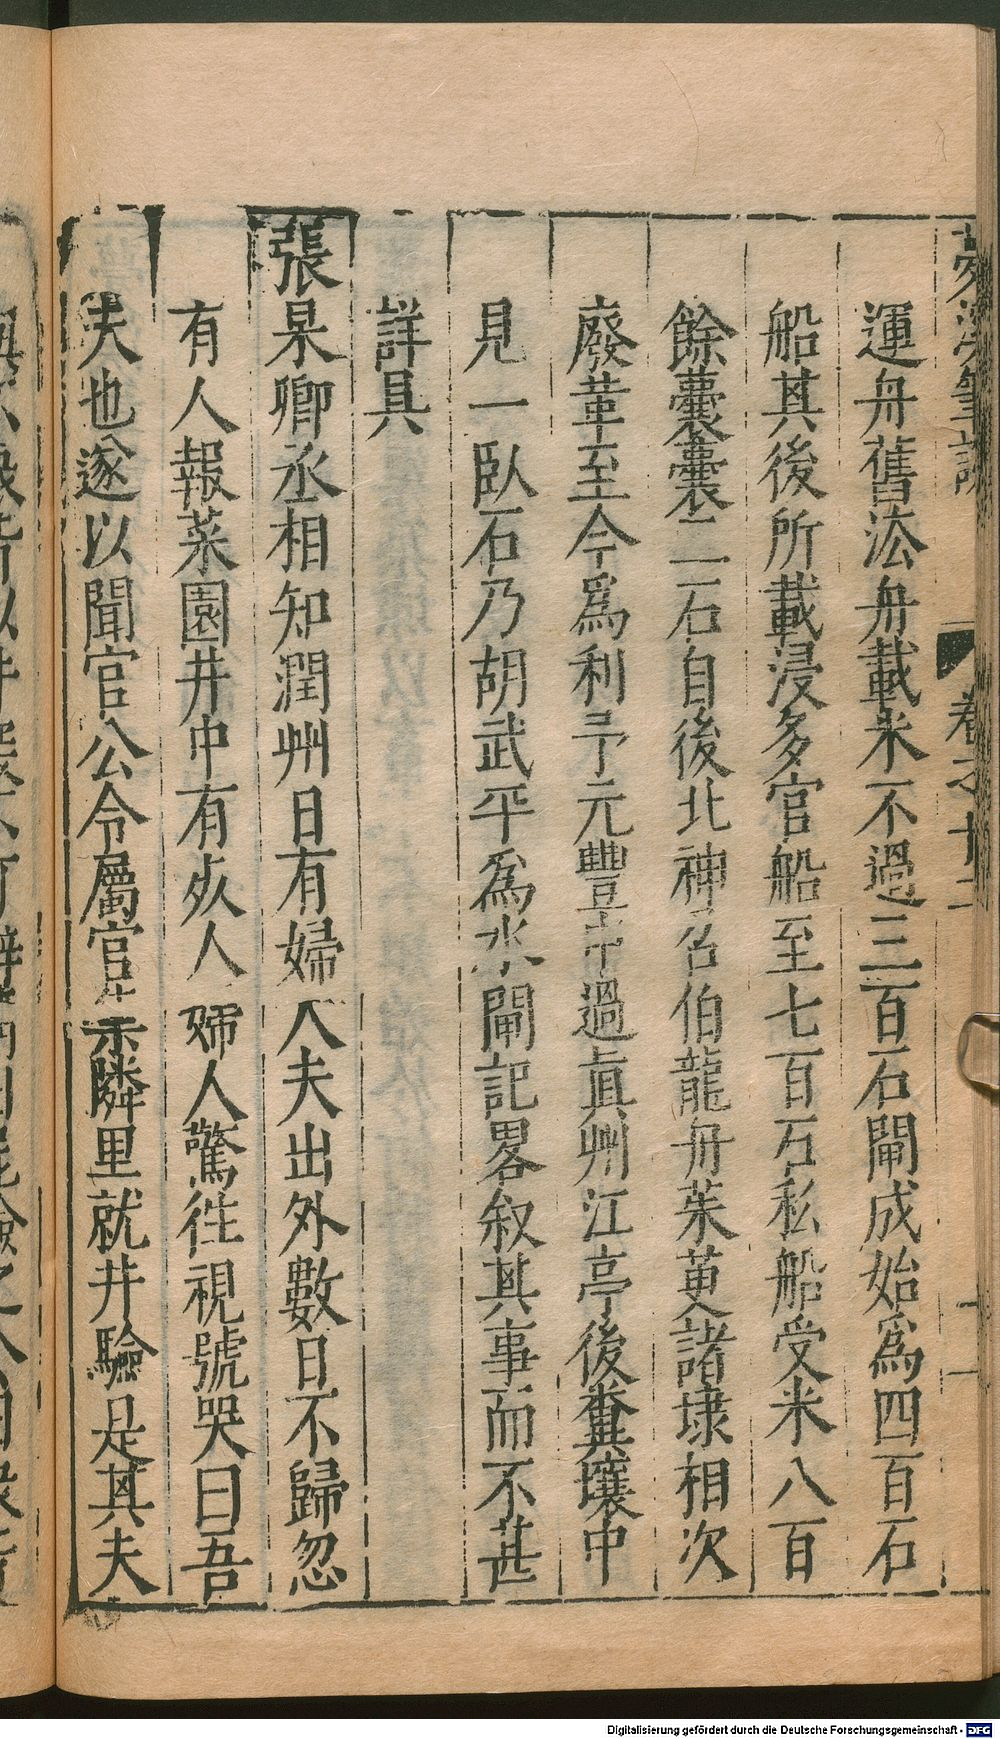 夢溪筆談 卷之十二 十一
運舟舊法舟載米不過三百石閘成始爲四百石
船其後所載浸多官船至七百石私船受米八百
餘囊囊二石自後北神召伯龍舟茱萸諸埭相次
廢革至今爲利予元豐中過眞州江亭後糞壤中
見一臥石乃胡武平爲水閘記畧叙其事而不甚
詳具
張杲卿丞相知潤州日有婦人夫出外數日不歸忽
有人報菜園井中有死人婦人驚徃視號哭曰吾
夫也遂以聞官公令屬官集隣里就井驗是其夫
Digitalisierung gefördert durch die Deutsche Forschungsgemeinschaft - DFG